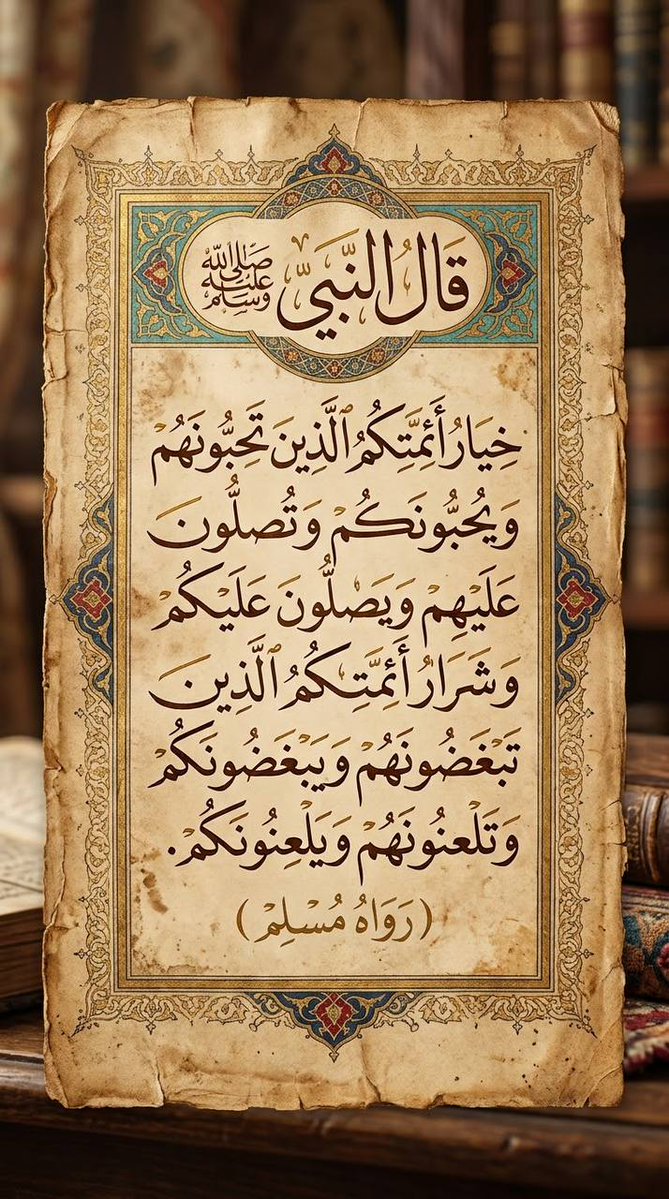 قَالَ النَّبِيُّ صَلَّى اللَّهُ عَلَيْهِ وَسَلَّمَ
خِيَارُ أَئِمَّتِكُمُ ٱلَّذِينَ تُحِبُّونَهُمْ
وَيُحِبُّونَكُمْ وَتُصَلُّونَ
عَلَيْهِمْ وَيَصَلُّونَ عَلَيْكُمْ
وَشَرَارُ أَئِمَّتِكُمُ ٱلَّذِينَ
تَبْغَضُونَهُمْ وَيَبْغَضُونَكُمْ
وَتَلْعَنُونَهُمْ وَيَلْعِنُونَكُمْ.
(رَوَاهُ مُسْلِمْ)